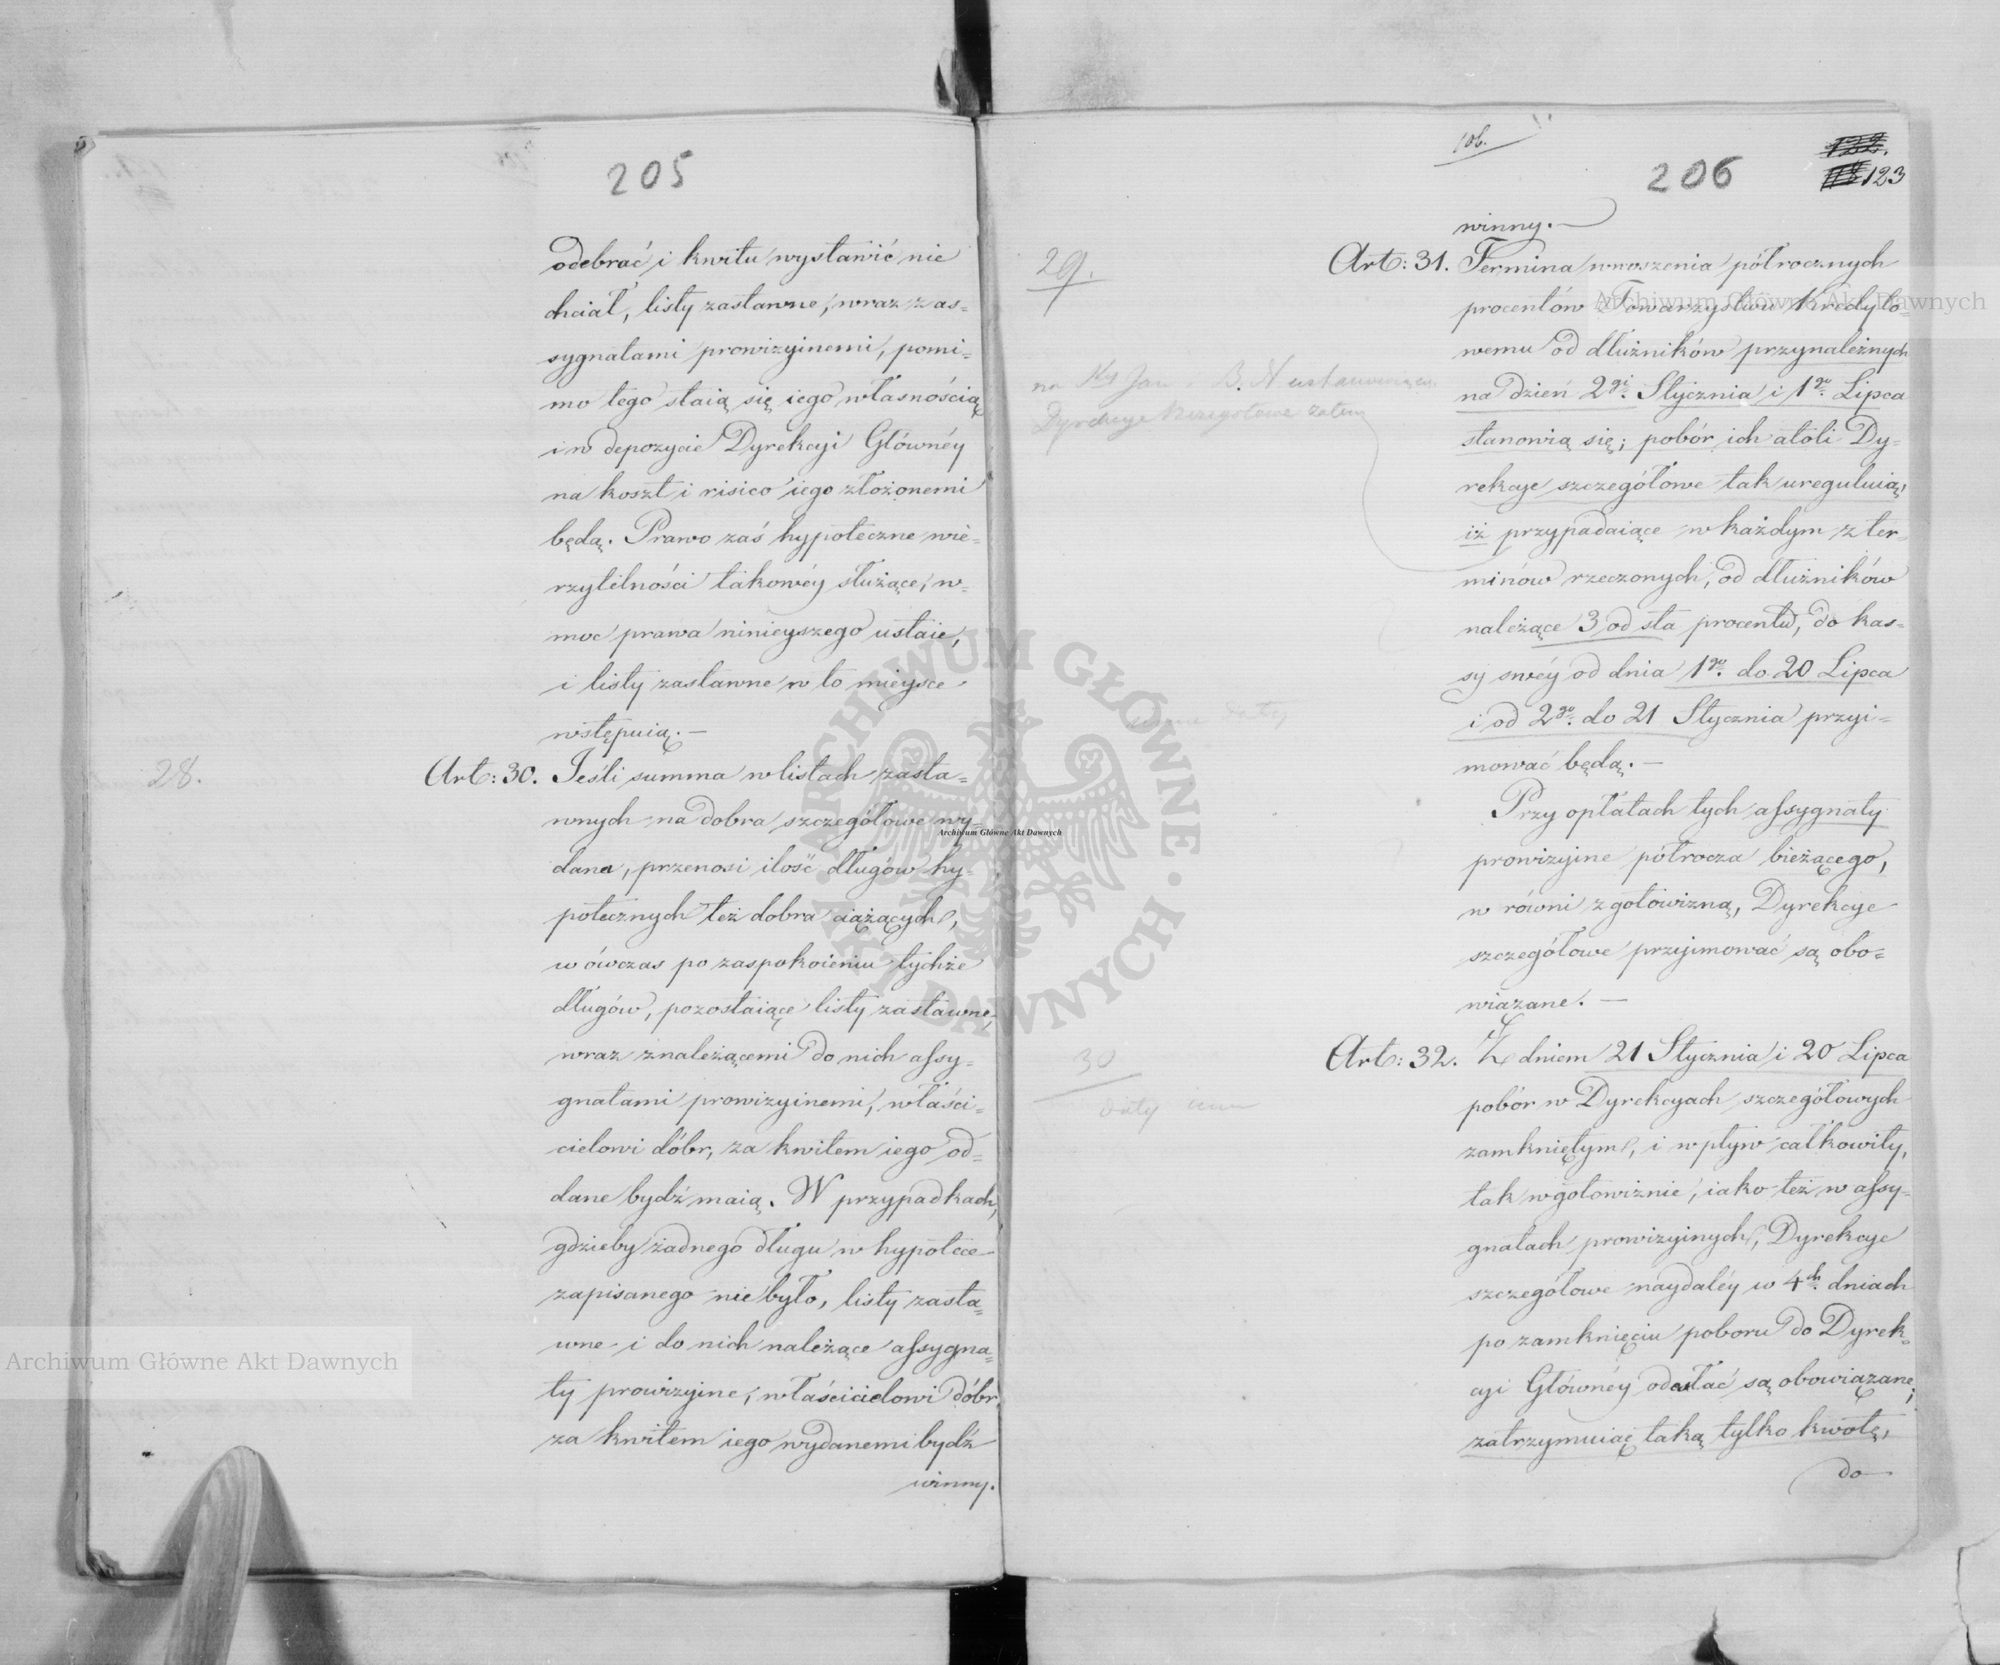 205
odebrać i kwitu wystawić nie
chciał, listy zastawne, wraz z as-
sygnatami prowizyinemi, pomi-
mo tego staią się iego własnością
i w depozycie Dyrekcyi Główney
na koszt i risico iego złożonemi
będą. Prawo zaś hypoteczne wie-
rzytelności takowéy służące, w-
moc prawa ninieyszego ustaie,
i listy zastawne w to mieysce
wstępuią. —
28.
Art: 30. Jeśli summa w listach zasta=
wnych na dobra szczegółowe wy-
dana, przenosi ilość długów hy-
potecznych też dobra ciążących,
w ówczas po zaspokoieniu tychże
długów, pozostaiące listy zastawne,
wraz z należącemi do nich assy-
gnatami prowizyinemi, właści-
cielowi dóbr, za kwitem iego od=
dane bydź maią. W przypadkach,
gdzieby żadnego długu w hypotece
zapisanego nie było, listy zasta=
wne i do nich należące assygna=
ty prowizyine, właścicielowi dóbr,
za kwitem iego wydanemi bydź
winny.
106.
206
122.
123
winny. —
29.
Art: 31. Termina wnoszenia półrocznych
procentów Towarzystwu Kredyto-
wemu od dłużników przynależnych
na dzień 2gi. Stycznia i 1go. Lipca
stanowią się; pobór ich atoli Dy=
rekcye szczegółowe tak ureguluią,
iż przypadaiące w każdym z ter-
minów rzeczonych, od dłużników
należące 3 od sta procentu, do kas-
sy swéy od dnia 1go. do 20 Lipca
i od 2go. do 21 Stycznia przyi=
mować będą. —
Dyrekcye szczegółowe zatem
Przy opłatach tych assygnaty
prowizyine półrocza bieżącego,
w równi z gotowizną, Dyrekcye
szczegółowe przyjmować są obo=
wiązane. —
30
daty
Art: 32. Z dniem 21 Stycznia i 20 Lipca
pobór w Dyrekcyach szczegółowych
zamkniętym, i wpływ całkowity,
tak w gotowiznie, iako też w assy-
gnatach prowizyinych, Dyrekcye
szczegółowe naydaléy w 4ch. dniach
po zamknięciu poboru do Dyrek-
cyi Główney odesłać są obowiązane,
zatrzymuiąc taką tylko kwotę,
do
Archiwum Główne Akt Dawnych
Archiwum Główne Akt Dawnych
Archiwum Główne Akt Dawnych
ARCHIWUM GŁÓWNE AKT DAWNYCH